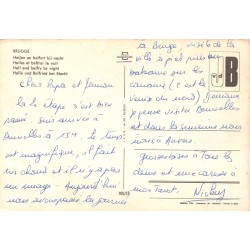 BRUGGE
Hallen en belfort bij nacht
Halles et beffroi la nuit
Hall and belfry by night
Halle und Belfried bei Nacht
Chers Papa et Maman
la 2e étape s'est bien
passé, suis arrivée à
Bruxelles à 15h. le temps
est magnifique, il fait
chaud et il n'y a pas
un nuage. Aujourd'hui
nous avons passé la journée
à Bruges, visite de la
ville à pied puis en
bateau sur les
canaux (c'est la
Venise du nord) Demain
je pense visiter Bruxelles
et dans la semaine nous
irons à Anvers.
Grosses bises à Tous les
deux et une caresse à
mon Tarot. Nicole
B